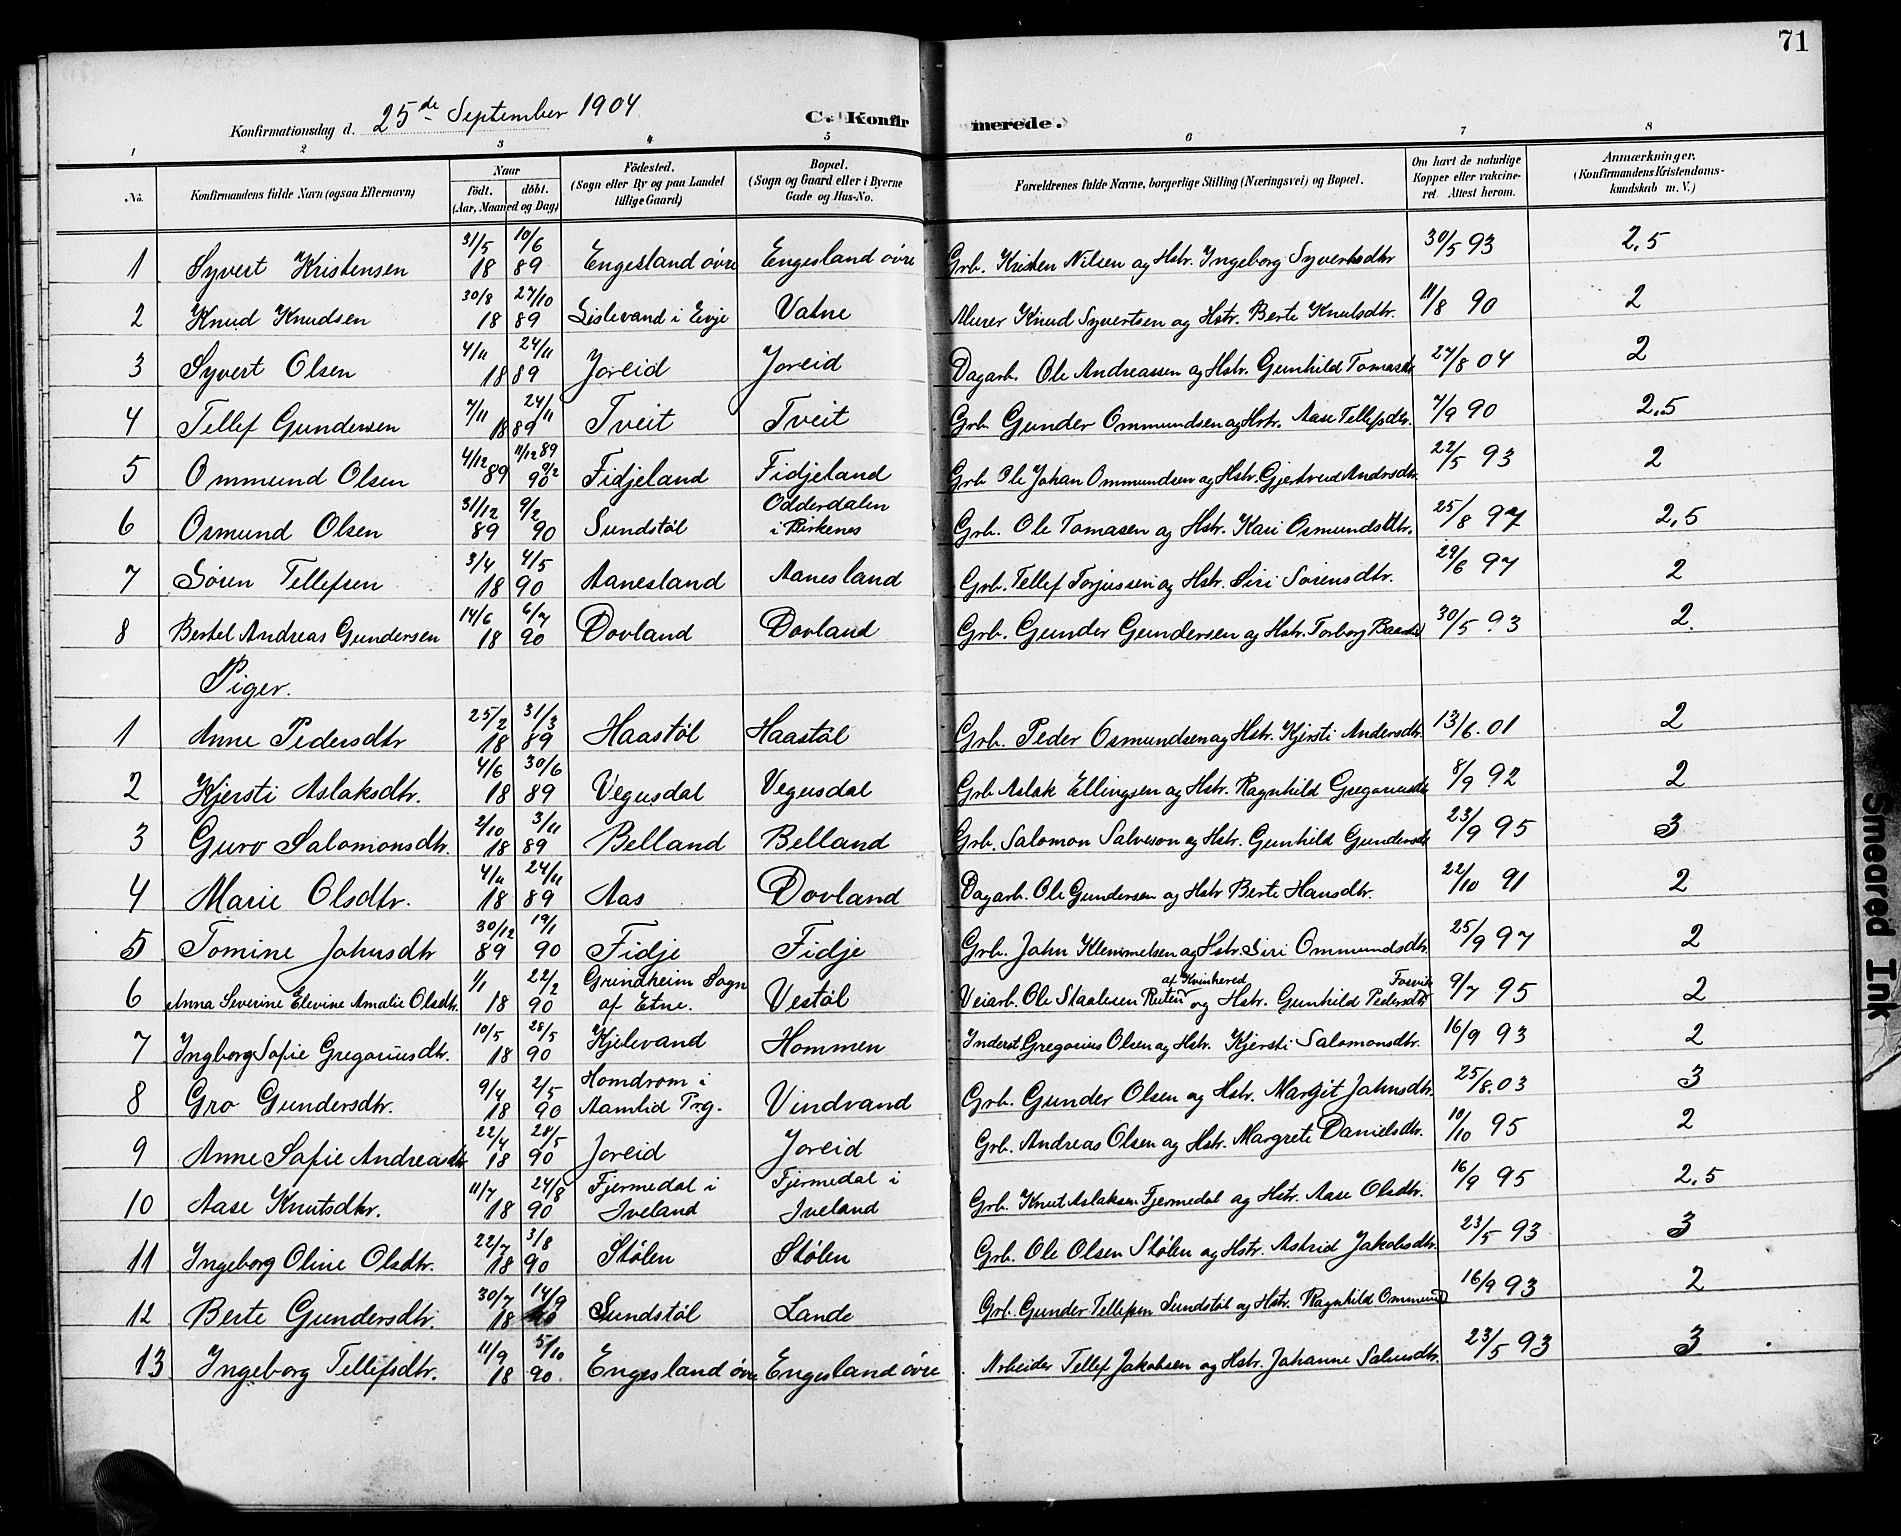 71
Konfirmationsdag d. 25de September 1904 C. Konfirmerede.
1 2 3 4 5 6 7 8
No. Konfirmandens fulde Navn (ogsaa Efternavn) Naar Födt. döbt. (Aar, Maaned og Dag) Födested. (Sogn eller By og paa Landet tillige Gaard) Bopæl. (Sogn og Gaard eller i Byerne Gade og Hus-No. Forældrenes fulde Navne, borgerlige Stilling (Næringsvei) og Bopæl. Om havt de naturlige Kopper eller vaccineret. Attest herom. Anmærkninger. (Konfirmandens Kristendomskundskab m. V.)
1 Syvert Kristensen 31/5 18 10/6 89 Engesland övre Engesland övre Grb. Kristen Nilsen og Hstr. Ingeborg Syvertsdtr 30/5 93 2,5
2 Knud Knudsen 30/8 18 27/10 89 Lislevand i Evje Vatne Murer Knud Syvertsen og Hstr. Berte Knutsdtr. 11/8 90 2
3 Syvert Olsen 4/11 18 24/11 89 Joreid Joreid Dagarb. Ole Andreassen og Hstr. Gunhild Tomasdtr 27/8 04 2
4 Tellef Gundersen 7/11 18 24/11 89 Tveit Tveit Grb. Gunder Ommundsen og Hstr. Aase Tellefsdtr. 7/9 90 2,5
5 Ommund Olsen 4/12 89 11/12 89 9/2 90 Fidjeland Fidjeland Grb. Ole Johan Ommundsen og Hstr. Gjertrud Andersdtr. 22/5 93 2
6 Osmund Olsen 31/12 89 9/2 90 Sundstøl Odderdalen i Birkenes Grb. Ole Tomasen og Hstr. Kari Osmundsdtr. 25/8 97 2,5
7 Sören Tellefsen 3/4 18 4/5 90 Aanesland Aanesland Grb. Tellef Torjussen og Hstr. Siri Sorensdtr. 29/6 97 2
8 Bertel Andreas Gundersen 14/6 18 6/7 90 Dovland Dovland Grb. Gunder Gundersen og Hstr. Torborg 30/5 93 2.
Piger.
1 Anne Pedersdtr 25/2 18 31/3 89 Haastøl Haastøl Grb. Peder Osmundsen og Hstr. Kjersti Andersdtr. 13/6. 01 2
2 Kjersti Aslaksdtr. 4/6 18 30/6 89 Vegusdal Vegusdal Grb Aslak Ellingsen og Hstr. Ragnhild Gregoriusdtr 8/9 92 2
3 Guro Salomonsdtr. 2/10 18 3/11 89 Belland Belland Grb. Salomon Salveson og Hstr. Gunhild Gundersdtr 23/9 95 3
4 Marie Olsdtr. 4/11 18 24/11 89 Aas Dovland Dagarb. Ole Gundersen og Hstr Berte Hansdtr. 22/10 91 2
5 Tomine Johnsdtr 30/12 89 19/1 90 Fidje Fidje Grb. John Klemmetsen og Hstr. Siri Ommundsdtr. 25/9 97 2
6 Anna Severine Elevine Amalie Olsdtr. 1/1 18 22/2 90 Grindheim Sogn af Etne. Vestöl Veiarb. Ole Staalesen af Kvinhered og Hstr. Gunhild Pedersdtr 9/7 95 2
7 Ingborg Sofie Gregoriusdtr. 10/5 18 28/5 90 Kjelevand Hommen Inderst. Gregorius Olsen og Hstr. Kjersti Salomonsdtr. 16/9 93 2
8 Gro Gundersdtr. 9/4 18 2/5 90 Homdrom i Aamlid Prg. Vindvand Grb. Gunder Olsen og Hstr. Margit Johnsdtr. 25/8. 03 3
9 Anne Sofie Andreasdtr 22/4 18 28/5 90 Joreid Joreid Grb. Andreas Olsen og Hstr. Margrete Danielsdtr. 10/10 95 2
10 Aase Knutsdtr. 11/7 18 24/8 90 Fjermedal i Iveland Fjermedal i Iveland Grb. Knut Aslaksen Fjermedal og Hstr. Aase Olsdtr. 16/9 95 2,5
11 Ingeborg Oline Olsdtr. 22/7 18 3/8 90 Stølen Stølen Grb. Ole Olsen Stølen og Hstr. Astrid Jakobsdtr. 23/5 93 3
12 Berte Gundersdtr. 30/7 18 14/9 90 Sundstøl Lande Grb. Gunder Tellefsen Sundstøl og Hstr. Ragnhild Ommund 16/9 93 2
13 Ingeborg Tellefsdtr. 11/9 18 5/10 90 Engesland övre Engesland övre Arbeider Tellef Jakobsen og Hstr. Johanne Salvesdtr. 23/5 93 3
Smeared Ink